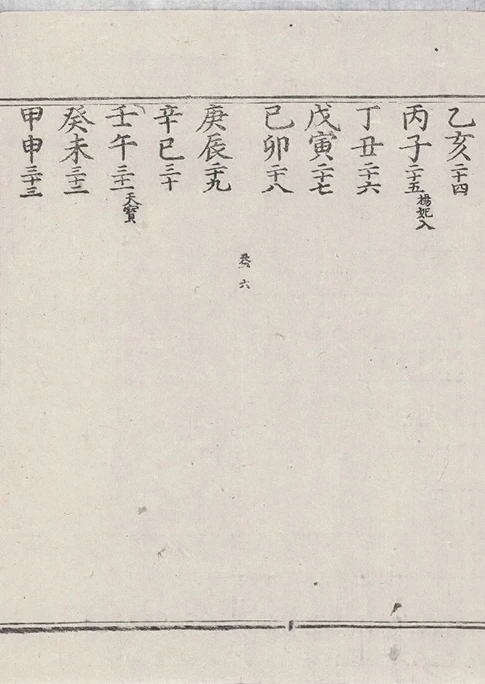 乙亥二十四
丙子二十五 楊妃入
丁丑二十六
戊寅二十七
己卯二十八
六
庚辰二十九
辛巳三十
壬午三十一 天寶
癸未三十二
甲申三十三